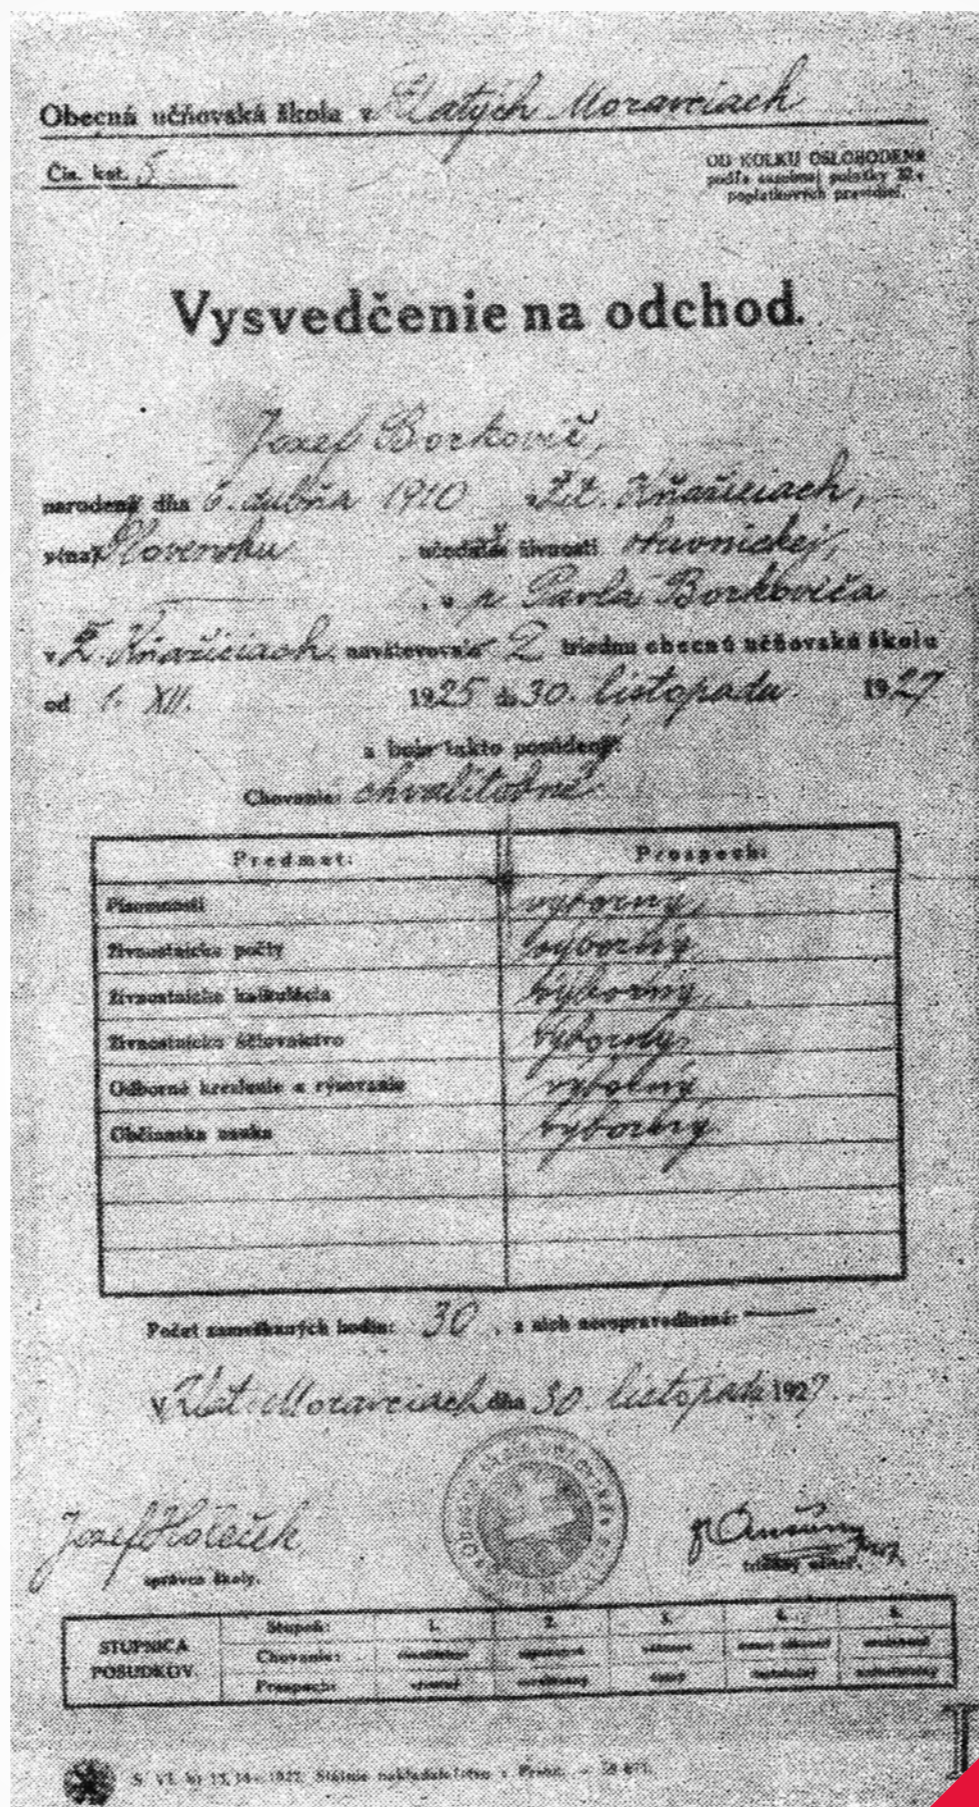 Obecná učňovská škola v Zlatých Moravciach
Čís. kat. 5
OD KOLKU OSLOBODENÉ
podľa saznimej položky
poplatkových pravidiel.
Vysvedčenie na odchod.
Jozef Borkovič,
narodený dňa 6. dubňa 1910 v Žit. Kňažiciach,
Slovensku učedník živnosti stavnickej,
u p. Pavla Borkoviča
v Ž. Kňažiciach, navštevoval 2 triednu obecnú učňovskú školu
od 1. XII. 1925 do 30. listopadu 1927
a bol takto posúdený:
Chovanie: chvalitebné
Predmet: Prospech:
Písomnosti výborný,
Živnostnícke počty výborný,
Živnostnícka kalkulácia výborný,
Živnostnícke účtovníctvo výborný,
Odborné kreslenie a rysovanie výborný
Občianska nauka výborný.
Počet zameškaných hodín: 30, z nich neospravedlnené: —
V Zlat. Moravciach dňa 30. listopadu 1927.
Jozef Holeček
správca školy.
triedny učiteľ.
Stupeň: 1. 2. 3. 4. 5.
STUPNICA
POSUDKOV.
Chovanie:
Prospech: výborný chvalitebný dobrý dostatočný nedostatočný
1927. Státnie nakladateľstvo v Prahe.